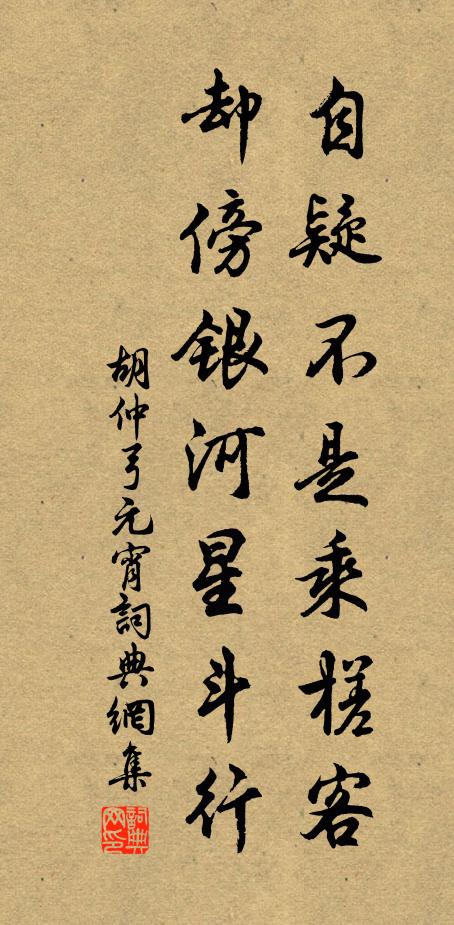 自疑不是乘槎客
却傍銀河星斗行
胡仲弓元宵詞典網集
詞典网印